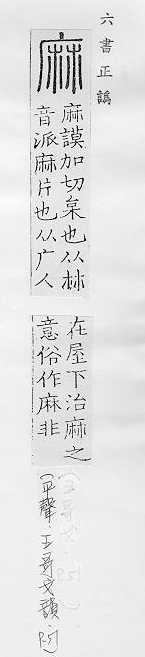 六書正譌
麻
麻謨加切枲也从𣏟
音派麻片也从广人
在屋下治麻之
意俗作麻非
(平聲．五哥戈韻．P.5)